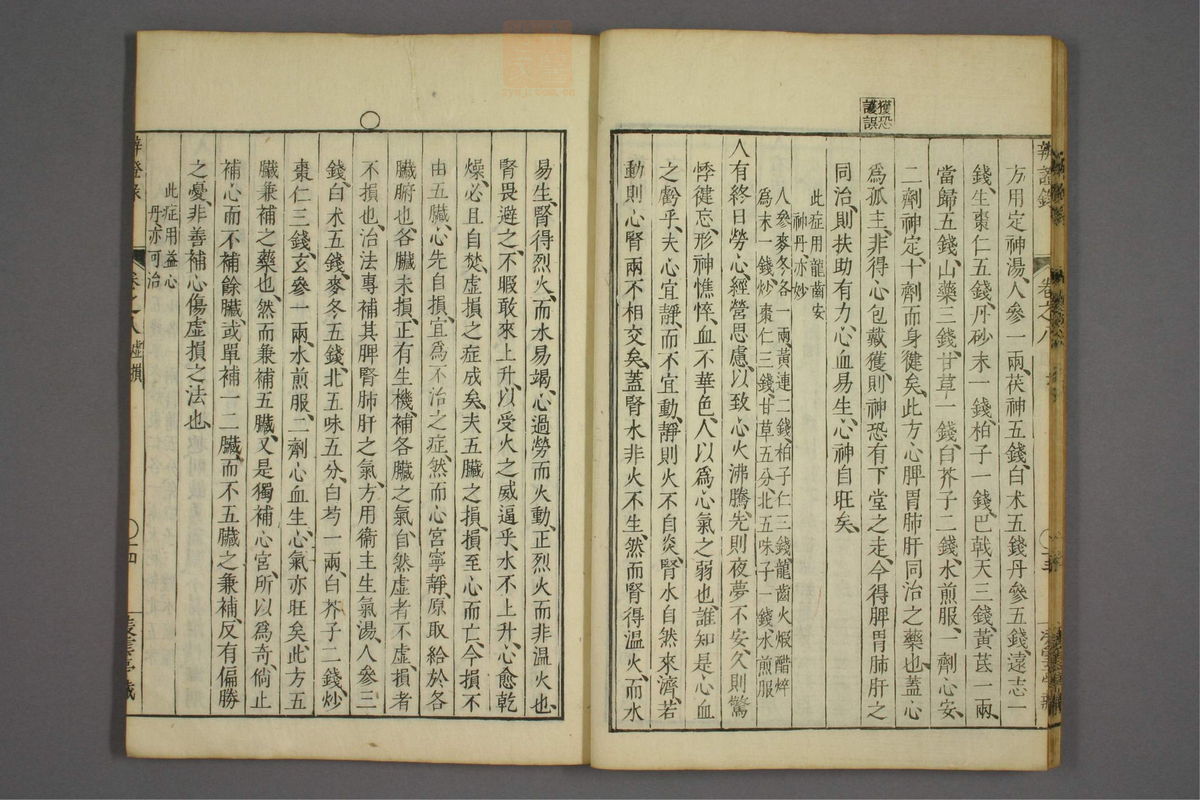 獲恐
護誤
方用定神湯、人參一兩、茯神五錢、白术五錢、丹參五錢、遠志一
錢、生棗仁五錢、丹砂末一錢、柏子一錢、巴戟天三錢、黃芪一兩、
當歸五錢、山藥三錢、甘草一錢、白芥子二錢、水煎服、一劑心安、
二劑神定、十劑而身徤矣、此方心脾胃肺肝同治之藥也、蓋心
爲孤主、非得心包戴獲、則神恐有下堂之走、今得脾胃肺肝之
同治、則扶助有力、心血易生、心神自旺矣、
此症用龍齒安
神丹、亦妙
人參麥冬各一兩、黃連二錢、柏子仁三錢、龍齒火煅醋焠
爲末一錢、炒棗仁三錢、甘草五分、北五味子一錢、水煎服
人有終日勞心、經營思慮、以致心火沸騰、先則夜夢不安、久則驚
悸徤忘、形神憔悴、血不華色、人以爲心氣之弱也、誰知是心血
之虧乎、夫心宜靜而不宜動、靜則火不自炎、腎水自然來濟、若
動則心腎兩不相交矣、蓋腎水非火不生、然而腎得温火、而水
易生、腎得烈火、而水易竭、心過勞而火動、正烈火而非温火也、
腎畏避之、不暇敢來上升、以受火之威逼乎、水不上升、心愈乾
燥、必且自焚、虚損之症成矣、夫五臟之損、損至心而亡、今損不
由五臟、心先自損、宜爲不治之症、然而心宮寧靜、原取給於各
臟腑也、各臟未損、正有生機、補各臟之氣、自然虚者不虚、損者
不損也、治法專補其脾腎肺肝之氣、方用衛主生氣湯、人參三
錢、白术五錢、麥冬五錢、北五味五分、白芍一兩、白芥子二錢、炒
棗仁三錢、玄參一兩、水煎服、二劑心血生、心氣亦旺矣、此方五
臟兼補之藥也、然而兼補五臟、又是獨補心宮、所以爲奇、倘止
補心而不補餘臟、或單補一二臟、而不五臟之兼補、反有偏勝
之憂、非善補心傷虚損之法也、
此症用益心
丹、亦可治